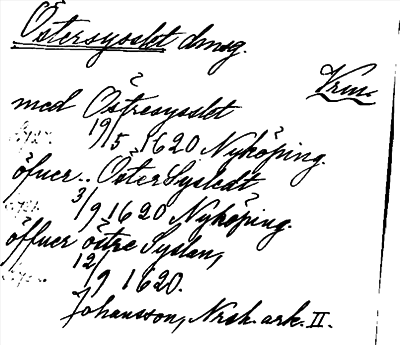 Östersysslet dmsg.
Vrm.
med Östresysslet
19/5 1620 Nyköping.
öfuer.. ÖsterSysledt
3/9 1620 Nyköping.
öffuer östre Syslan,
12/9 1620.
Johansson, Nrsk. ark. II.